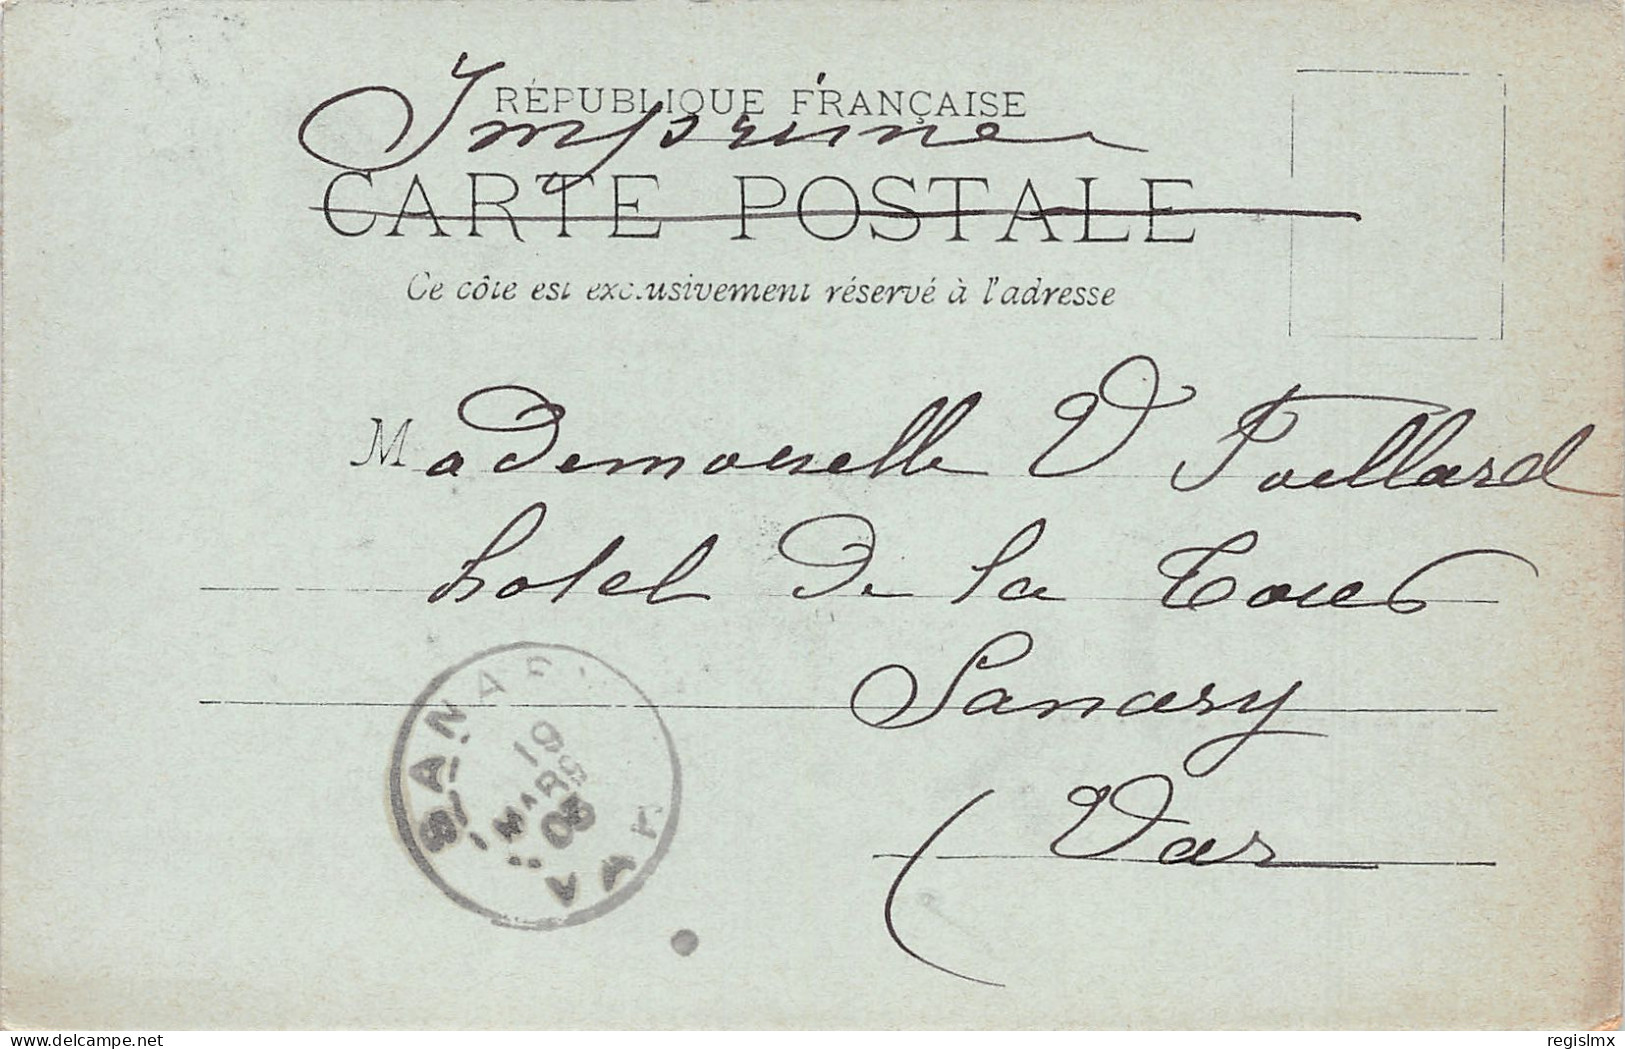 RÉPUBLIQUE FRANÇAISE
Imprime
CARTE POSTALE
Ce côté est exclusivement réservé à l'adresse
Mademoiselle V Poillard
hotel de la Tour
Sanary
(Var
SANARY
19
MARS
03
VAR
delcampe.net
regislmx